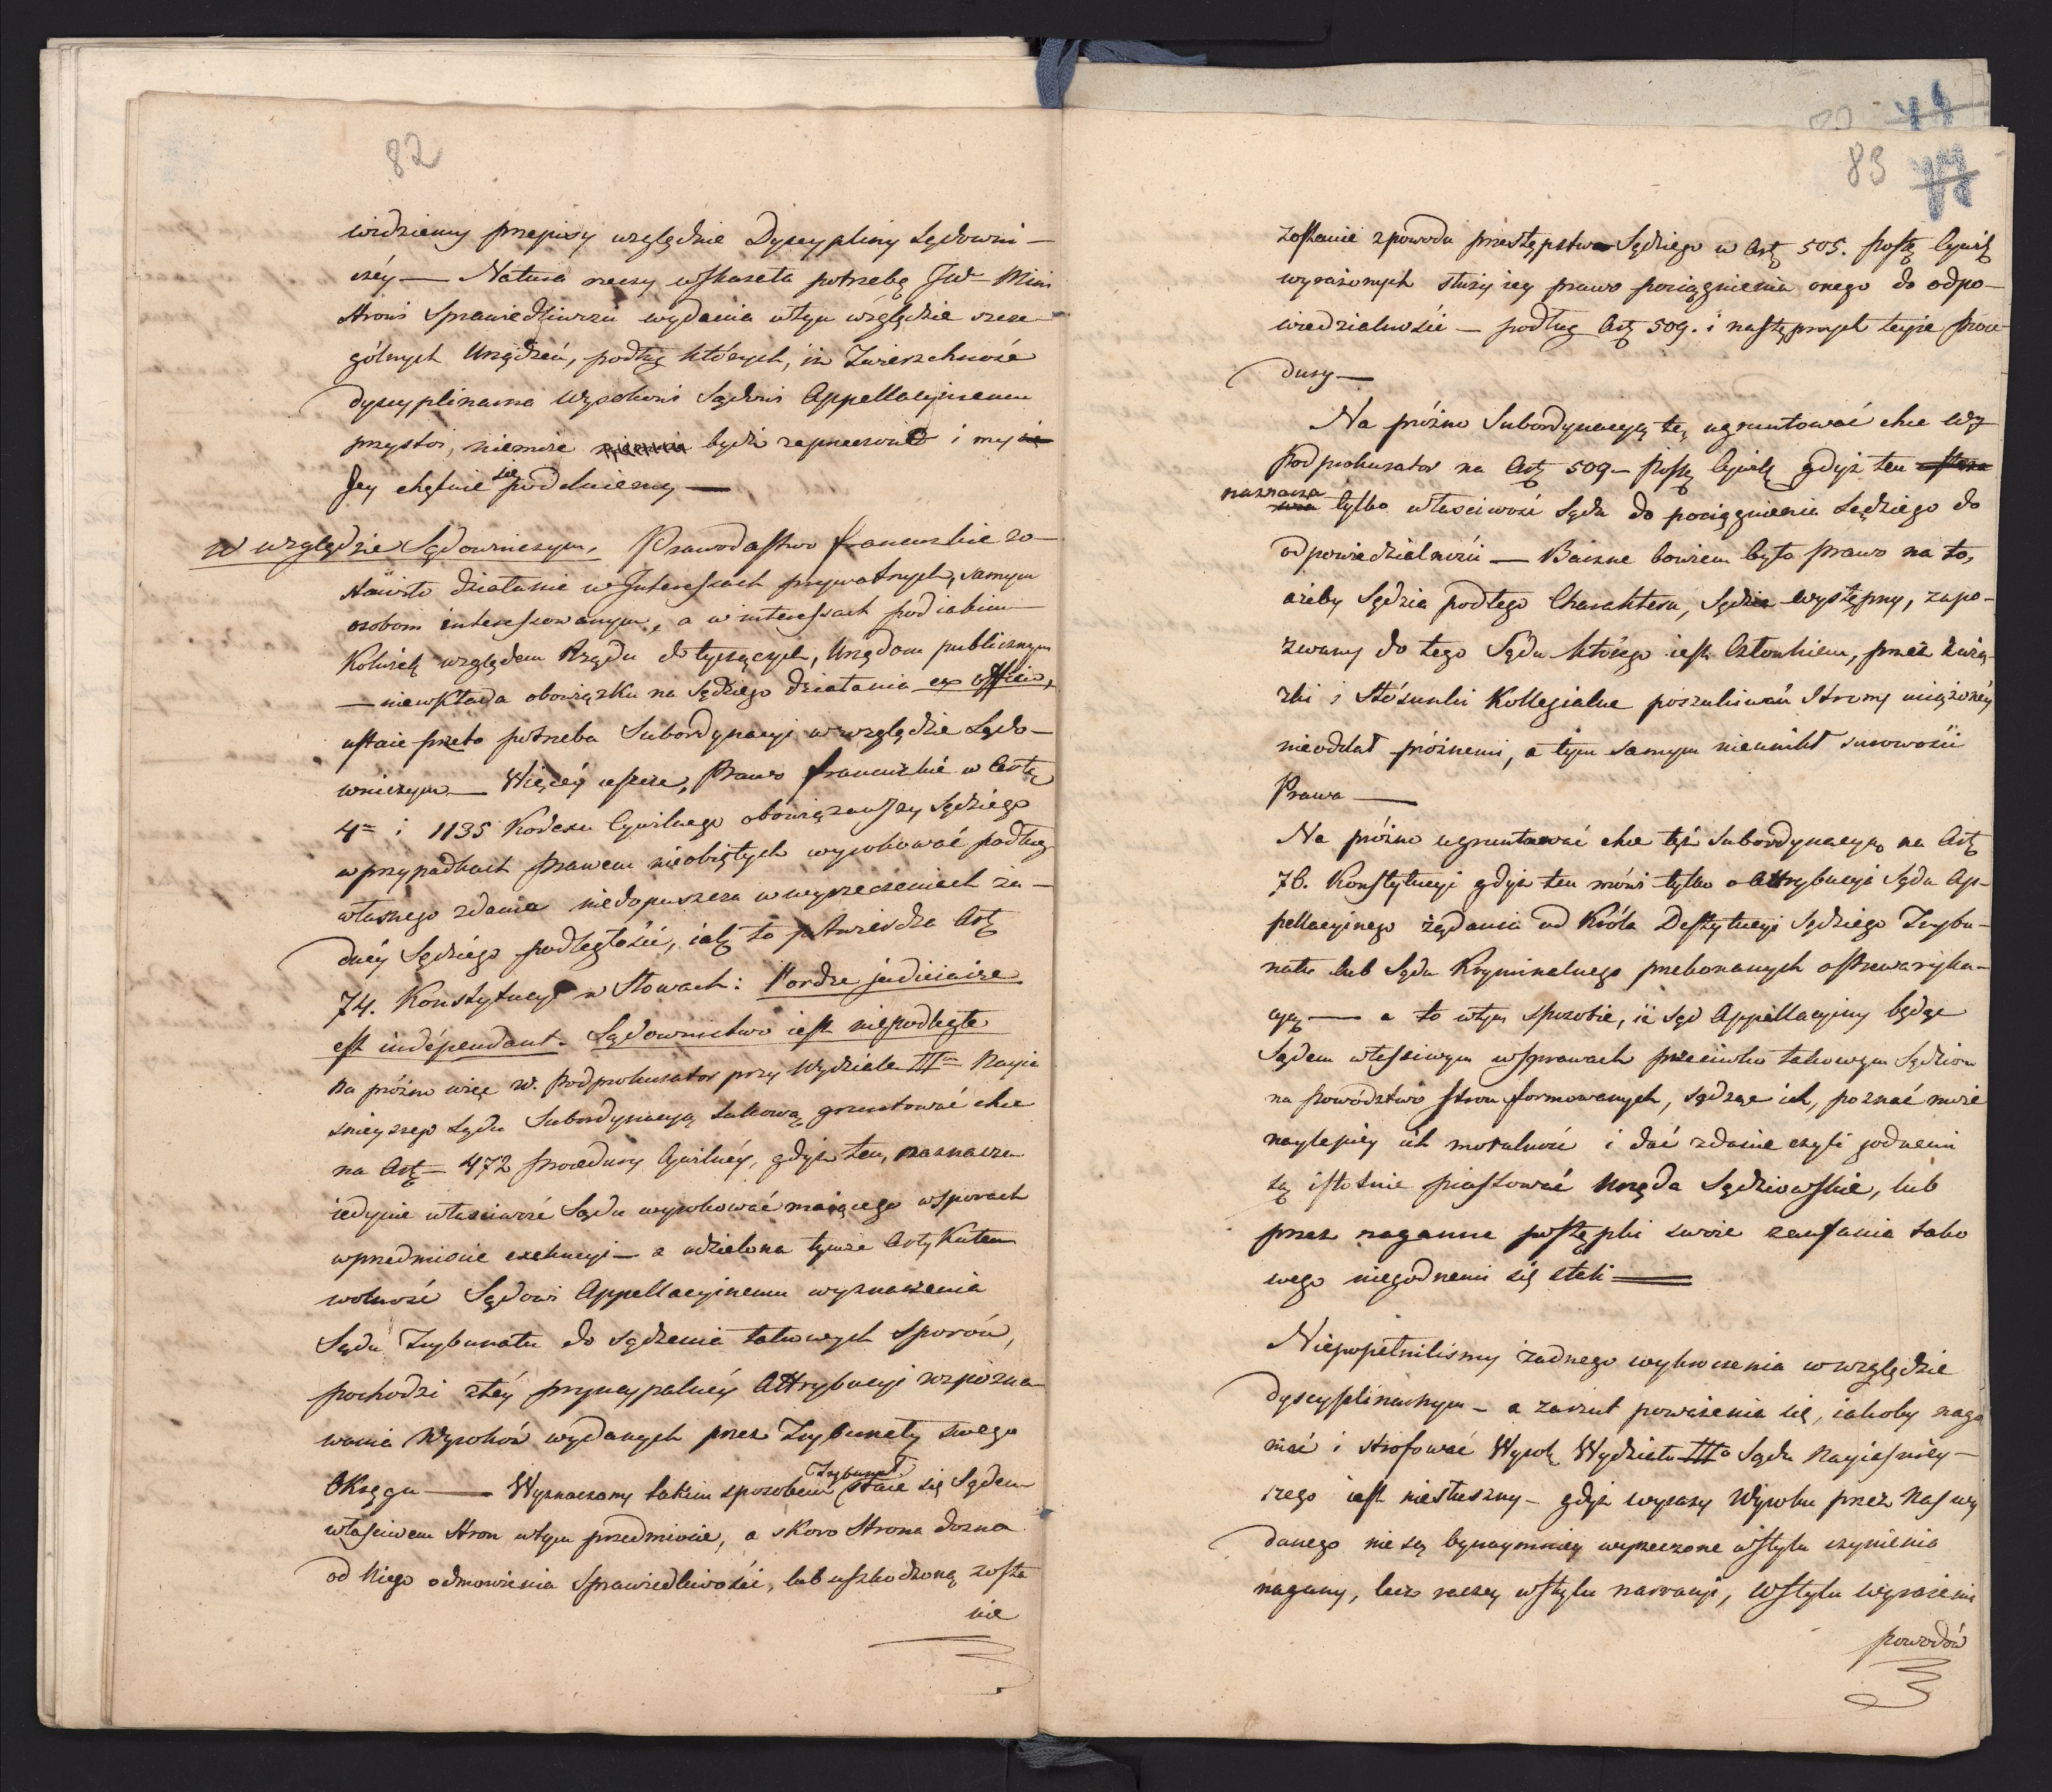 82
widziemy przepisy względnie Dyscypliny Sądowni-
czéy — Natura rzeczy wskazała potrzebę JW Mini
strowi Sprawiedliwości wydania wtym względzie szcze-
gólnych Urządzeń, podług których, iż Zwierzchność
dyscyplinarna Wysokowi Sądowi Appellacyinemu
przystoi, niemoże bydź zaprzeczoné i my
Jey chętnie się poddaiemy —
W względzie Sądowniczym. Prawodastwo francuzkie zo-
stawiło działanie w Interessach prywatnych, samym
osobom interessowanym, a w interessach pod iakim
Kolwiek względem Rządu dotyczących, Urzędom publicznym
— niewkłada obowiązku na Sędziego działania ex officio,
ustaie przeto potrzeba Subordynacyi w względzie Sądo-
wniczym — Więcéy ieszcze, Prawo francuzkie w Arty
4m i 1135 Kodexu Cywilnego obowiązawszy Sędziego
w przypadkach Prawem nieobiętych wyrokować podług
własnego zdania niedopuszcza w wyrzeczeniach ża-
dnéy Sędziego podległości, iak to potwierdza Art
74. Konstytucyi w Słowach: l'ordre judiciaire
est indépendant. Sądownictwo iest niepodległe
Na próżno więc W. Podprokurator przy Wydziale III Nayia
śnieyszego Sądu Subordynacyą takową gruntować chce
na Art — 472 procedury Cywilnéy, gdyż ten, oznacza
iedynie właściwość Sądu wyrokować maiącego w sporach
w przedmiocie exekucyi — a udzielona tymże Artykułem
wolność Sądowi Appellacyinemu wyznaczenia
Sądu Trybunału do sądzenia takowych Sporów,
pochodzi z téy pryncypalnéy Attrybucyi rozpozna-
wania Wyroków wydanych przez Trybunały swego
Okręgu — Wyznaczony takim sposobem Trybunał staie się Sądem
właściwem Stron wtym przedmiocie, a skoro Strona dozna
od Niego odmówienia Sprawiedliwości, lub uszkodzoną zosta
nie
83
zostanie z powodu przestępstwa Sędziego w Art 505. Postę Cywil
wyrażonych służy iey prawo pociągnienia onego do odpo-
wiedzialności — podług Art 509. i następnych teyże Proce-
dury —
Na próżno Subordynacyą tę ugruntować chce Wy
Podprokurator na Art 509 — Postę Cywilę gdyż ten
naznacza tylko właściwość Sądu do pociągnienia Sędziego do
odpowiedzialności — Baczne bowiem było Prawo na to,
ażeby Sędzia podłego Charakteru, Sędzia występny, zapo-
zwany do tego Sądu którego iest Członkiem, przez zwią-
zki i Stósunki Kollegialne poszukiwań Strony uciążonéy
nieoddał próżnemi, a tym samym nieunikł surowości
Prawa —
Na próżno ugruntować chce też Subordynacyą na Art
76. Konstytucyi gdyż ten mówi tylko o Attrybucyi Sądu Ap-
pellacyinego żądania od Króla Destytucyi Sędziego Trybu-
nału lub Sądu Kryminalnego przekonanych o
cyą — a to wtym sposobie, iż Sąd Appellacyiny będąc
Sądem właściwym w sprawach przeciwko takowym Sędziom
na powództwo stron formowanych, sądząc ich, poznać może
naylepiéy ich moralność i dać zdanie czyli godnemi
są istotnie piastować Urzęda Sędziowskie, lub
przez naganne postępki swoie zaufania tako
wego niegodnemi się stali —
Niepopełniliśmy żadnego wykroczenia w względzie
dyscyplinarnym — a zarzut poważenia się, iakoby naga
niać i strofować Wyrok Wydziału III Sądu Nayiaśniey-
szego iest niesłuszny — gdyż wyrazy Wyroku przez Nas wy
danego nie są bynaymniéy wyrzeczone w stylu czynienia
nagany, lecz raczey w stylu narracyi, w stylu wyrażenia
powodów